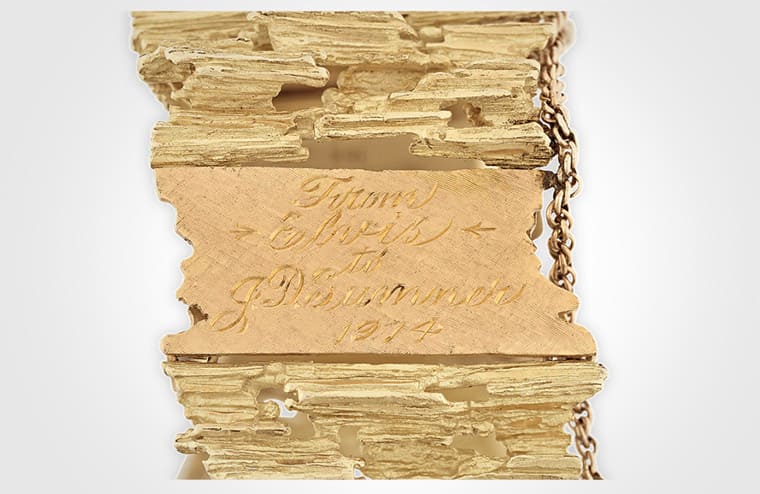 From
Elvis
to
JD Sumner
1974